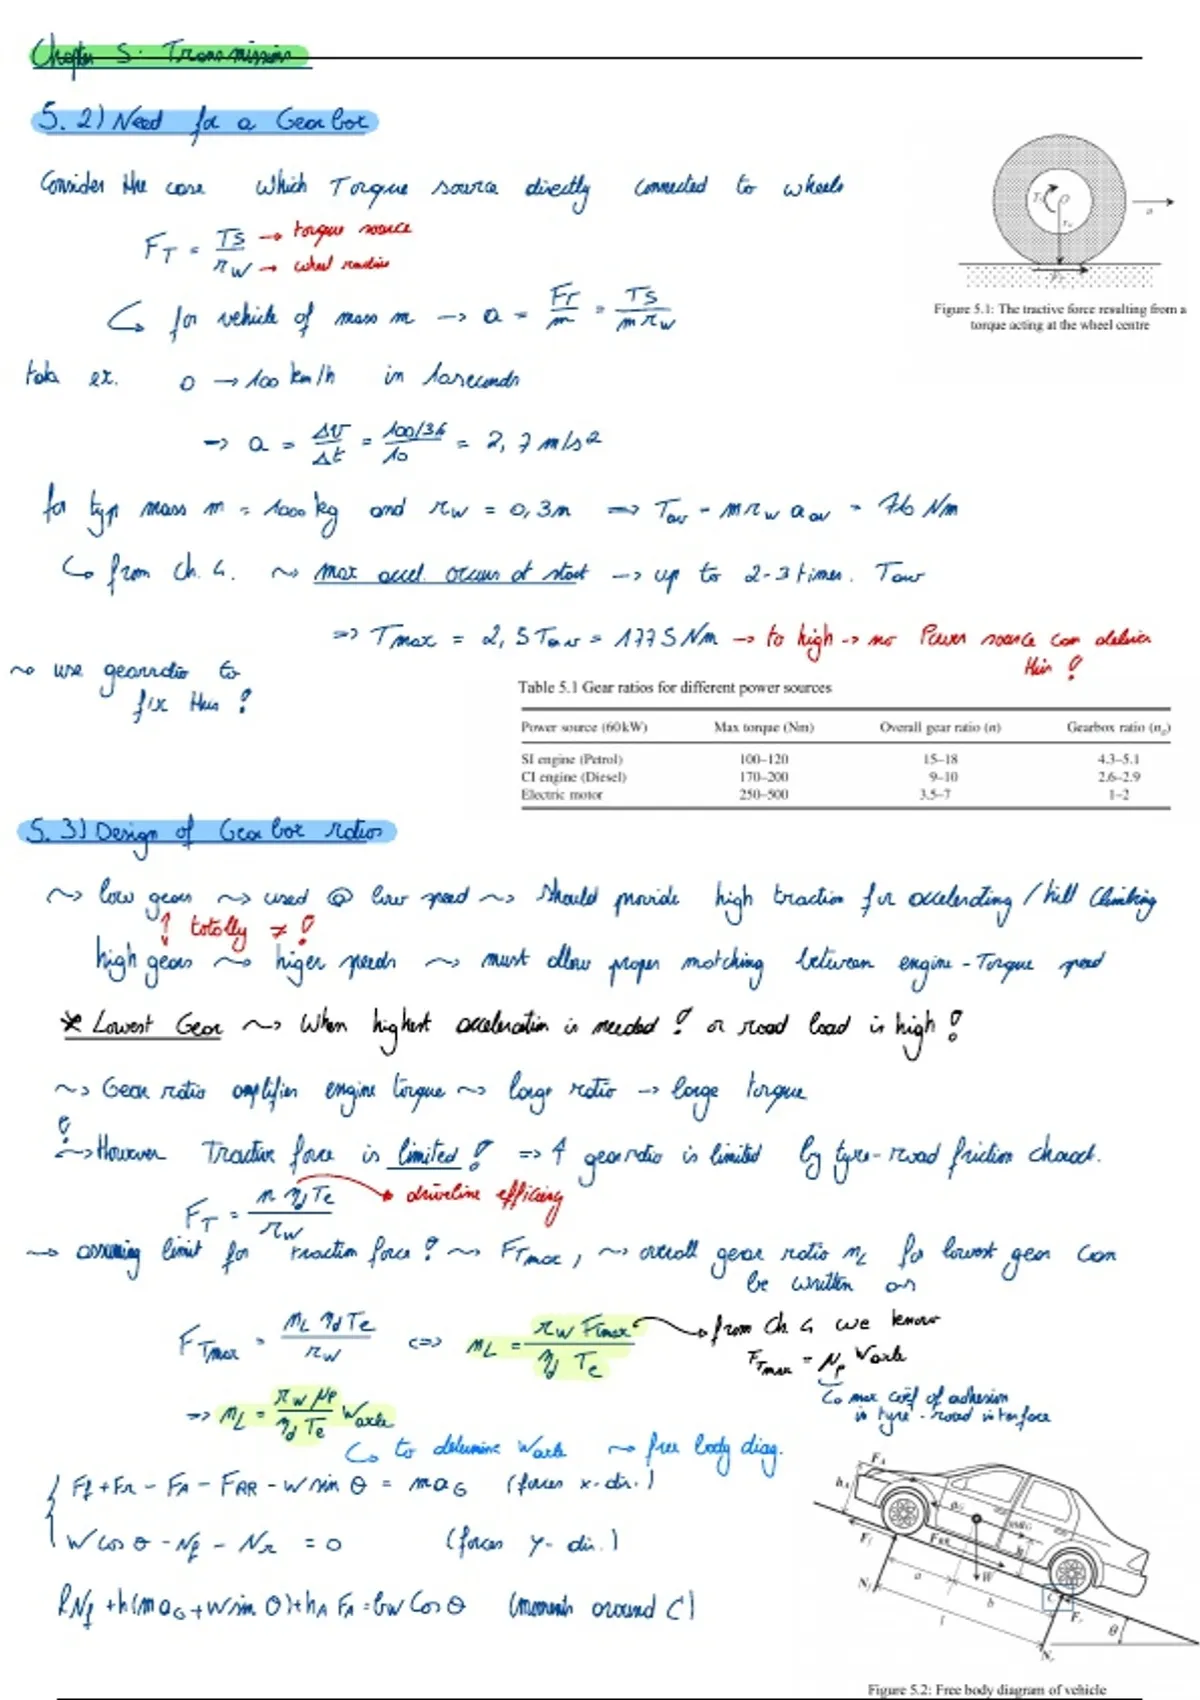 Chapter 5: Transmission
5.2) Need for a Gearbox
Consider the case which Torque source directly connected to wheels
F_T = Ts / r_w → torque source
→ wheel radius
↳ for vehicle of mass m → a = F_T / m = Ts / m r_w
Figure 5.1: The tractive force resulting from a
torque acting at the wheel centre
take ex. 0 → 100 km/h in 10 seconds
→ a = Δv / Δt = 100/3.6 / 10 = 2,7 m/s2
for typ mass m = 1000 kg and r_w = 0,3m ⇒ T_av = m r_w a_av = 716 Nm
↳ from ch. 4. ~> max accel. occurs at start → up to 2-3 times. T_av
⇒ T_max = 2,5 T_av = 1775 Nm → to high → no Power source can deliver
this !
~> use gearratio to
fix this !
Table 5.1 Gear ratios for different power sources
Power source (60 kW) Max torque (Nm) Overall gear ratio (n) Gearbox ratio (n_g)
SI engine (Petrol) 100–120 15–18 4.3–5.1
CI engine (Diesel) 170–200 9–10 2.6–2.9
Electric motor 250–500 3.5–7 1–2
5.3) Design of Gearbox ratios
~> low gears ~> used @ low speed ~> should provide high traction for accelerating / hill climbing
↕ totally ≠ !
high gears ~> higer speeds ~> must allow proper matching between engine-Torque speed
* Lowest Gear ~> When highest acceleration is needed ! or road load is high !
~> Gear ratio amplifies engine torque ~> large ratio → large torque
! ~> However Tractive force is limited ! ⇒ 1 gearratio is limited by tyre-road friction charact.
F_T = n η_d Te / r_w → driveline efficiency
→ assuming limit for traction force ! ~> F_Tmax, ~> overall gear ratio n_L for lowest gear can
be written as
F_Tmax = n_L η_d Te / r_w <=> n_L = r_w F_Tmax / η_d Te → from Ch. 4 we know
F_Tmax = μ_p W_axle
↳ max coef of adhesion
in tyre-road interface
⇒ n_L = r_w μ_p / η_d Te W_axle
↳ to determine W_axle ~> free body diag.
{ F_f + F_r - F_A - F_RR - W sin θ = m a_G (forces x-dir.)
W cos θ - N_f - N_r = 0 (forces y-dir.)
l N_f + h(m a_G + W sin θ) + h_A F_A = b W Cos θ (moments around C)
Figure 5.2: Free body diagram of vehicle